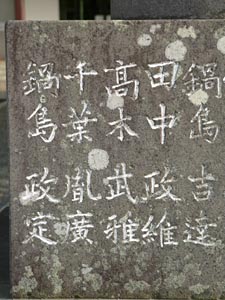 鍋島 吉達
田中 政維
高木 武雅
千葉 胤廣
鍋島 政定